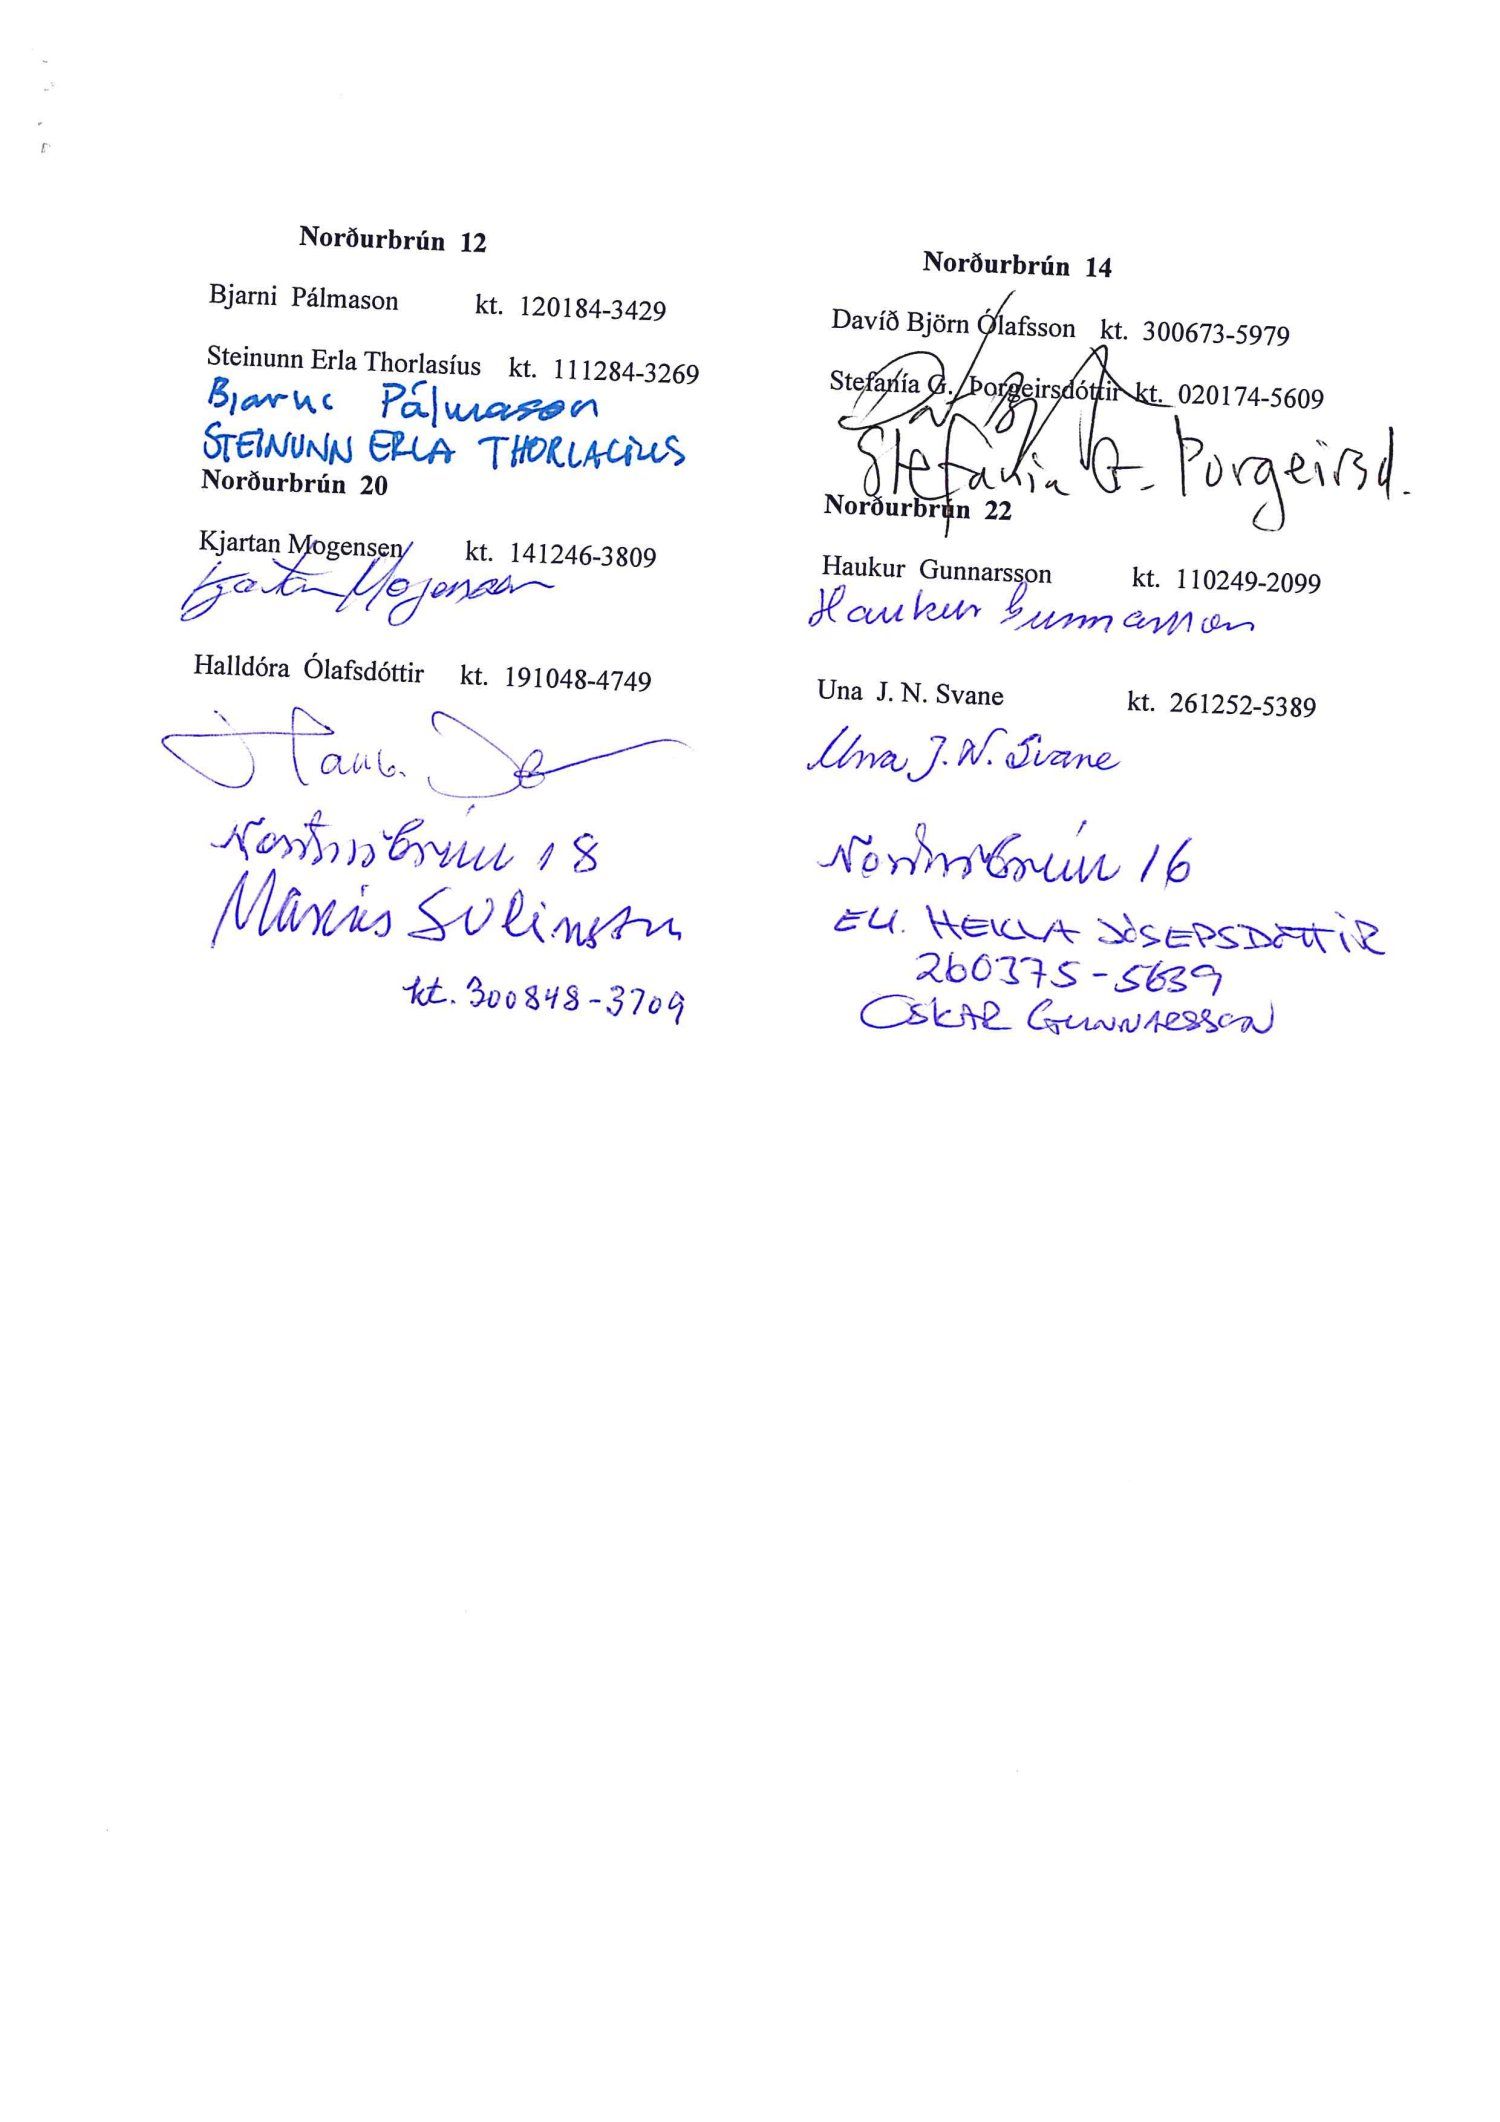 Norðurbrún 12
Bjarni Pálmason kt. 120184-3429
Steinunn Erla Thorlasíus kt. 111284-3269
Bjarni Pálmason
STEINUNN ERLA THORLACIUS
Norðurbrún 20
Kjartan Mogensen kt. 141246-3809
Kjartan Mogensen
Halldóra Ólafsdóttir kt. 191048-4749
Norðurbrún 18
Marius
kt. 300848-3709
Norðurbrún 14
Davíð Björn Ólafsson kt. 300673-5979
Stefanía G. Þorgeirsdóttir kt. 020174-5609
Stefania G. Þorgeirsd.
Norðurbrún 22
Haukur Gunnarsson kt. 110249-2099
Haukur Gunnarsson
Una J. N. Svane kt. 261252-5389
Una J. N. Svane
Norðurbrún 16
HEKLA JÓSEPSDÓTTIR
260375-5639
OSKAR GUNNARSSON